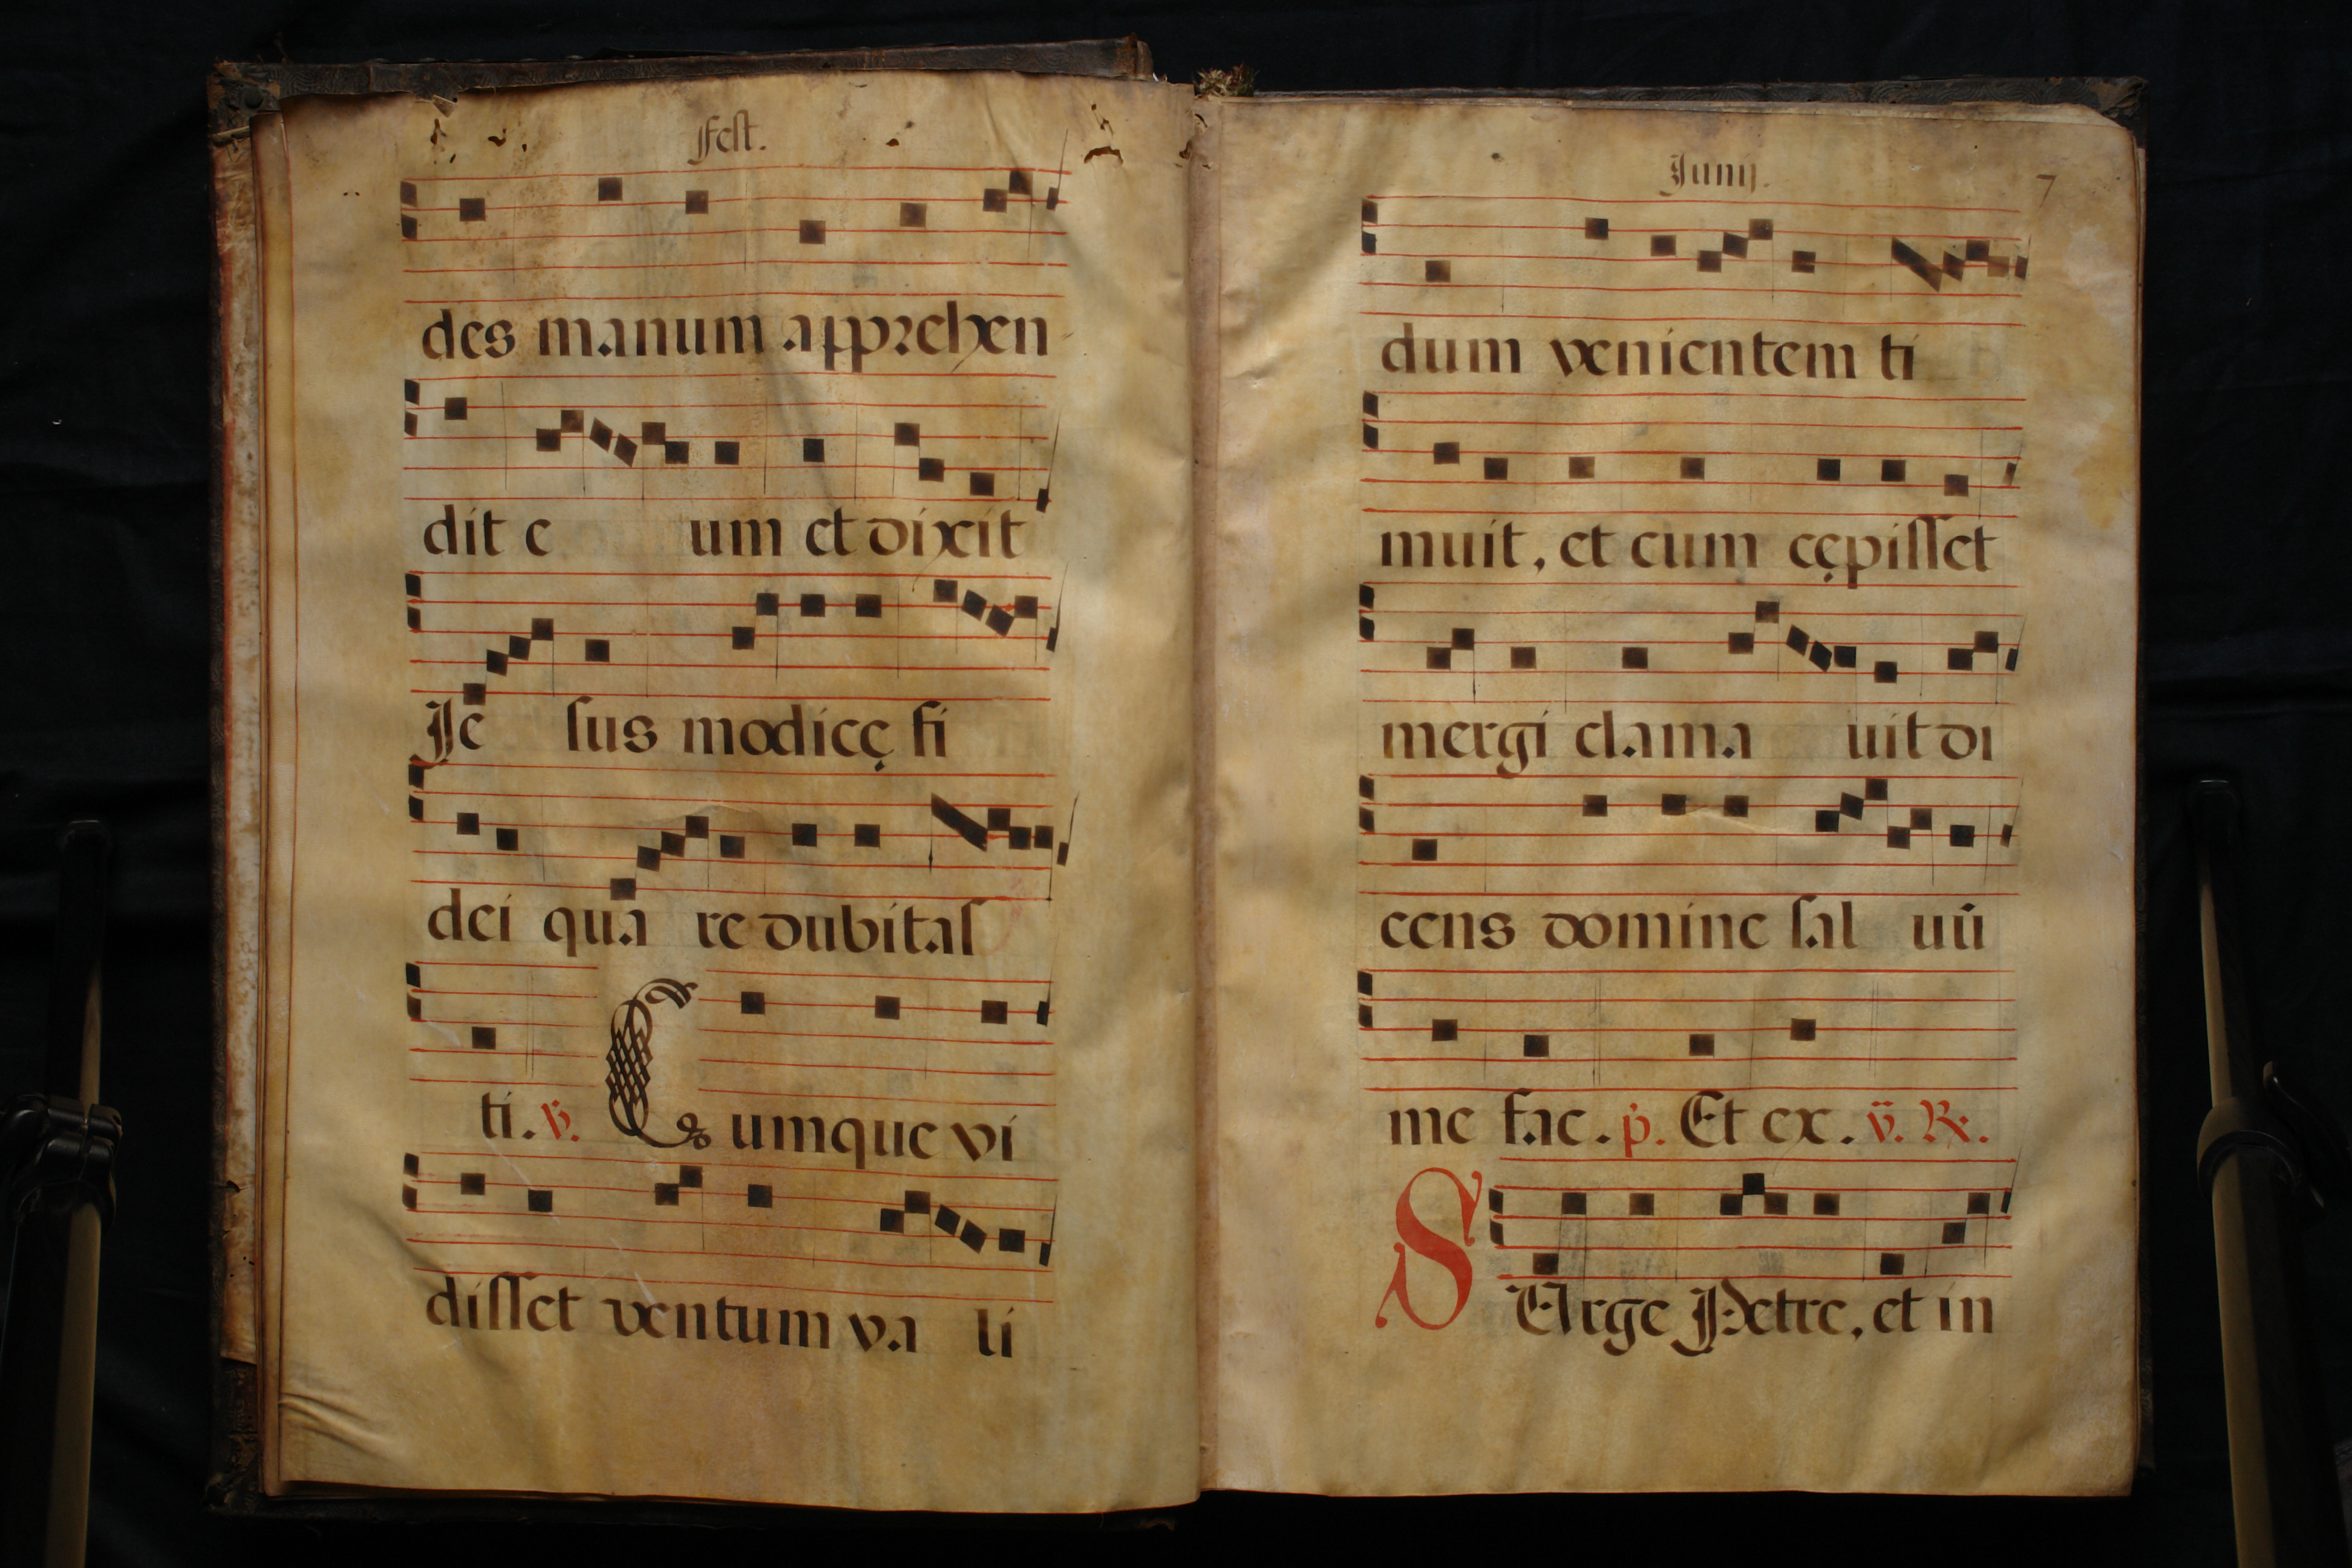 Fest.
des manum apprehen
dit e um et dixit
Je sus modicę fi
dei qua re dubitas
ti. v̄. Cumque vi
disset ventum va li
Junij. 7
dum venientem ti
muit, et cum cępisset
mergi clama uit di
cens domine sal uū
me fac. p̄. Et ex. v̄. R.
SUrge Petre, et in